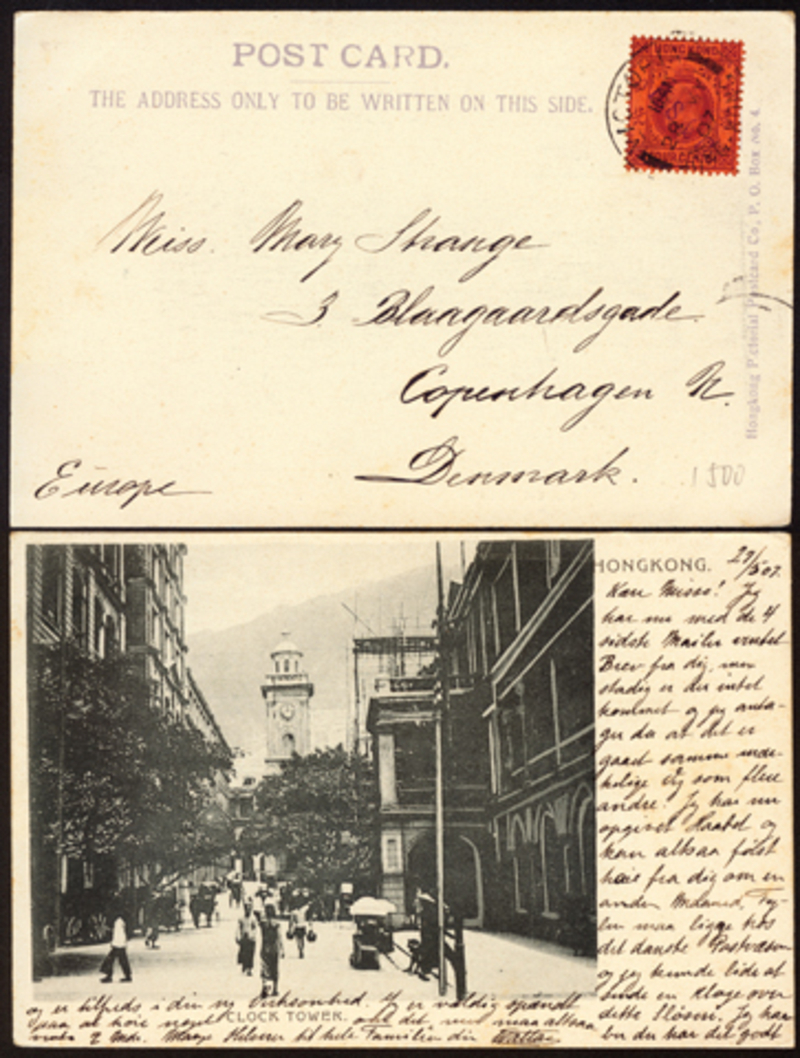 POST CARD.
THE ADDRESS ONLY TO BE WRITTEN ON THIS SIDE.
HONG KONG
Hongkong Pictorial Postcard Co., P. O. Box No. 4
Miss. Mary Strange
3 Blaagaardsgade.
Copenhagen N.
Denmark.
Europe
1500
HONGKONG.
29/5 07.
Kære Misse! Jeg
har nu med de 4
sidste Mailer ventet
Brev fra dig, men
stadig er der intet
kommet og jeg anta-
ger da at det er
gaaet samme
Vej som flere
andre. Jeg har nu
opgivet Haabet og
kan altsaa først
høre fra dig om en
anden Maaned,
maa ligge hos
det danske Postvæsen
og jeg kunde lide at
sende en Klage over
dette Sløseri. Jeg haa-
ber du har det godt
og er tilfreds i din ny Virksomhed. Jeg er vældig spændt
paa at høre noget om det, men maa altsaa
vente 2 Mdr. Mange Hilsener til hele Familien din
CLOCK TOWER.